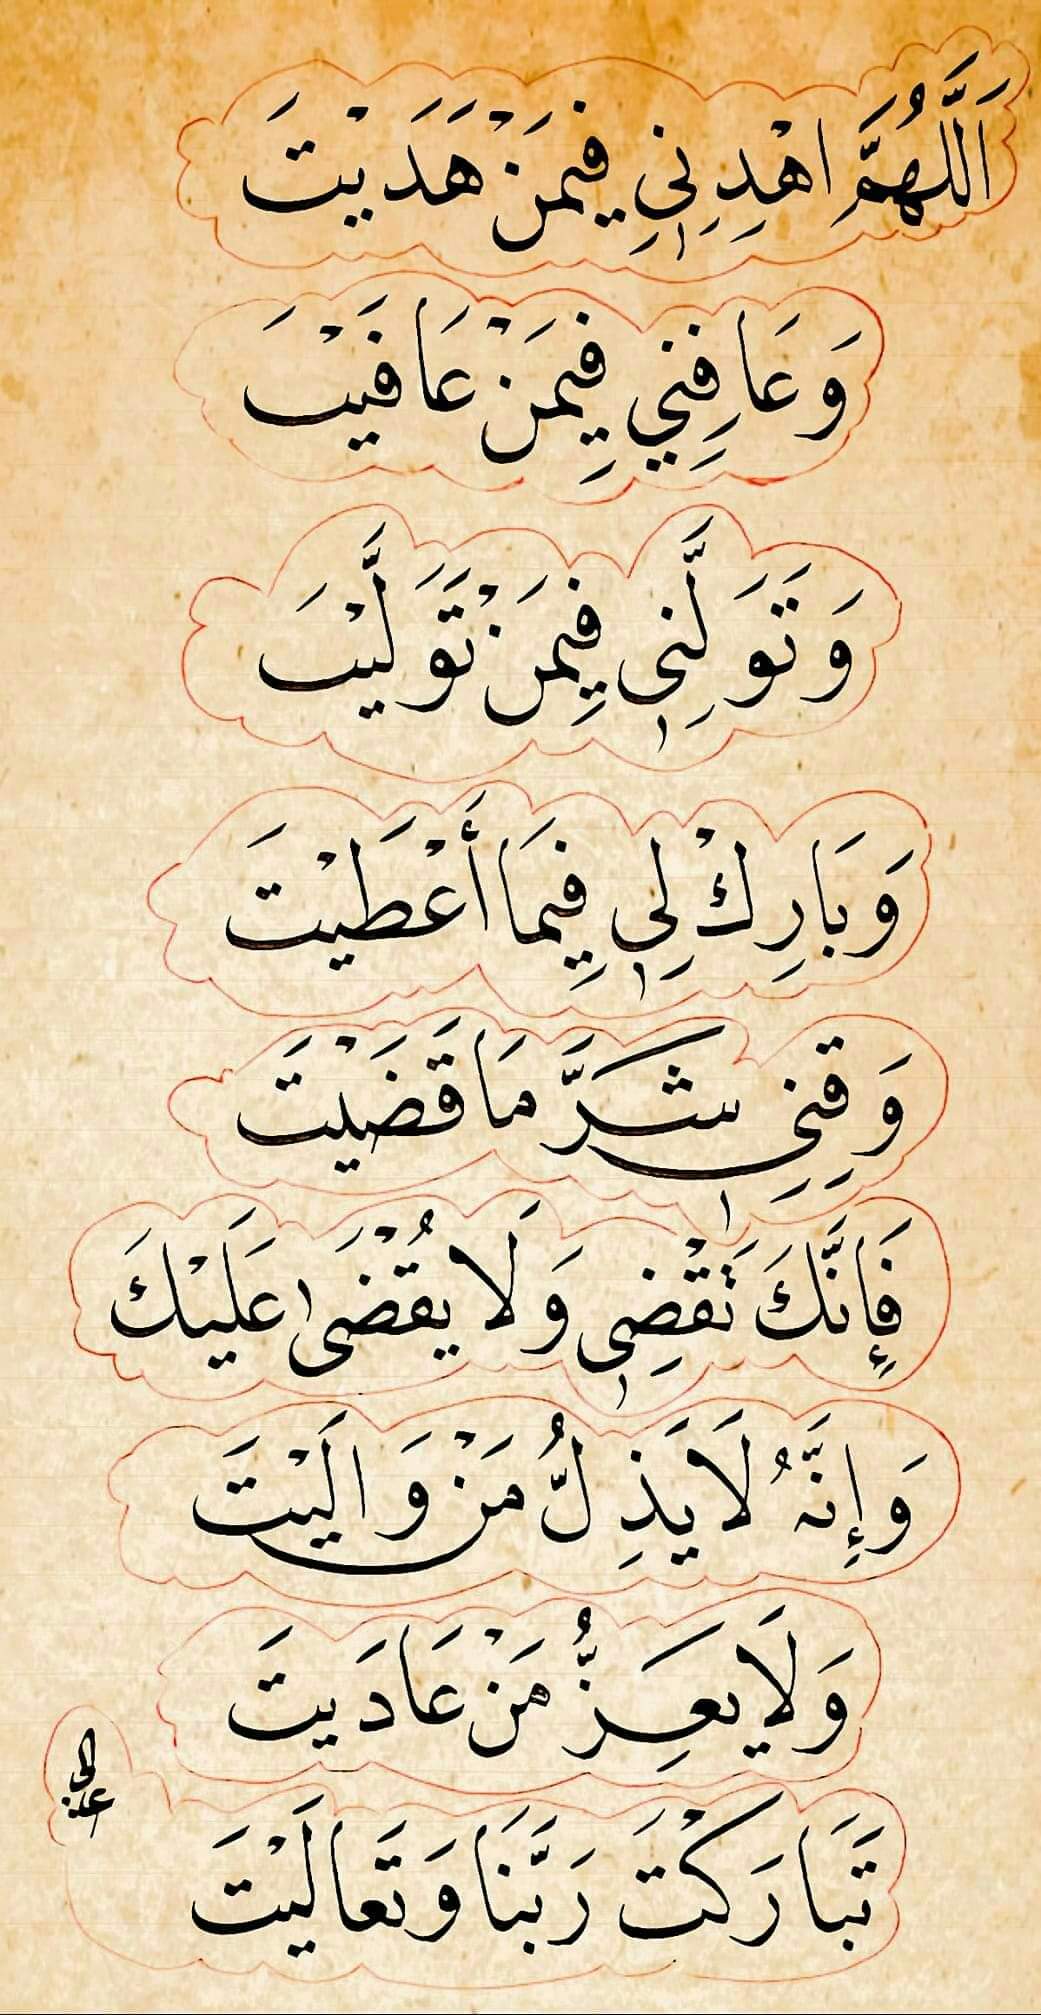 اَللَّهُمَّ اهْدِنِي فِيمَنْ هَدَيْتَ
وَعَافِنِي فِيمَنْ عَافَيْتَ
وَتَوَلَّنِي فِيمَنْ تَوَلَّيْتَ
وَبَارِكْ لِي فِيمَا أَعْطَيْتَ
وَقِنِي شَرَّ مَا قَضَيْتَ
فَإِنَّكَ تَقْضِي وَلَا يُقْضَى عَلَيْكَ
وَإِنَّهُ لَا يَذِلُّ مَنْ وَالَيْتَ
وَلَا يَعِزُّ مَنْ عَادَيتَ
تَبَارَكْتَ رَبَّنَا وَتَعَالَيْتَ